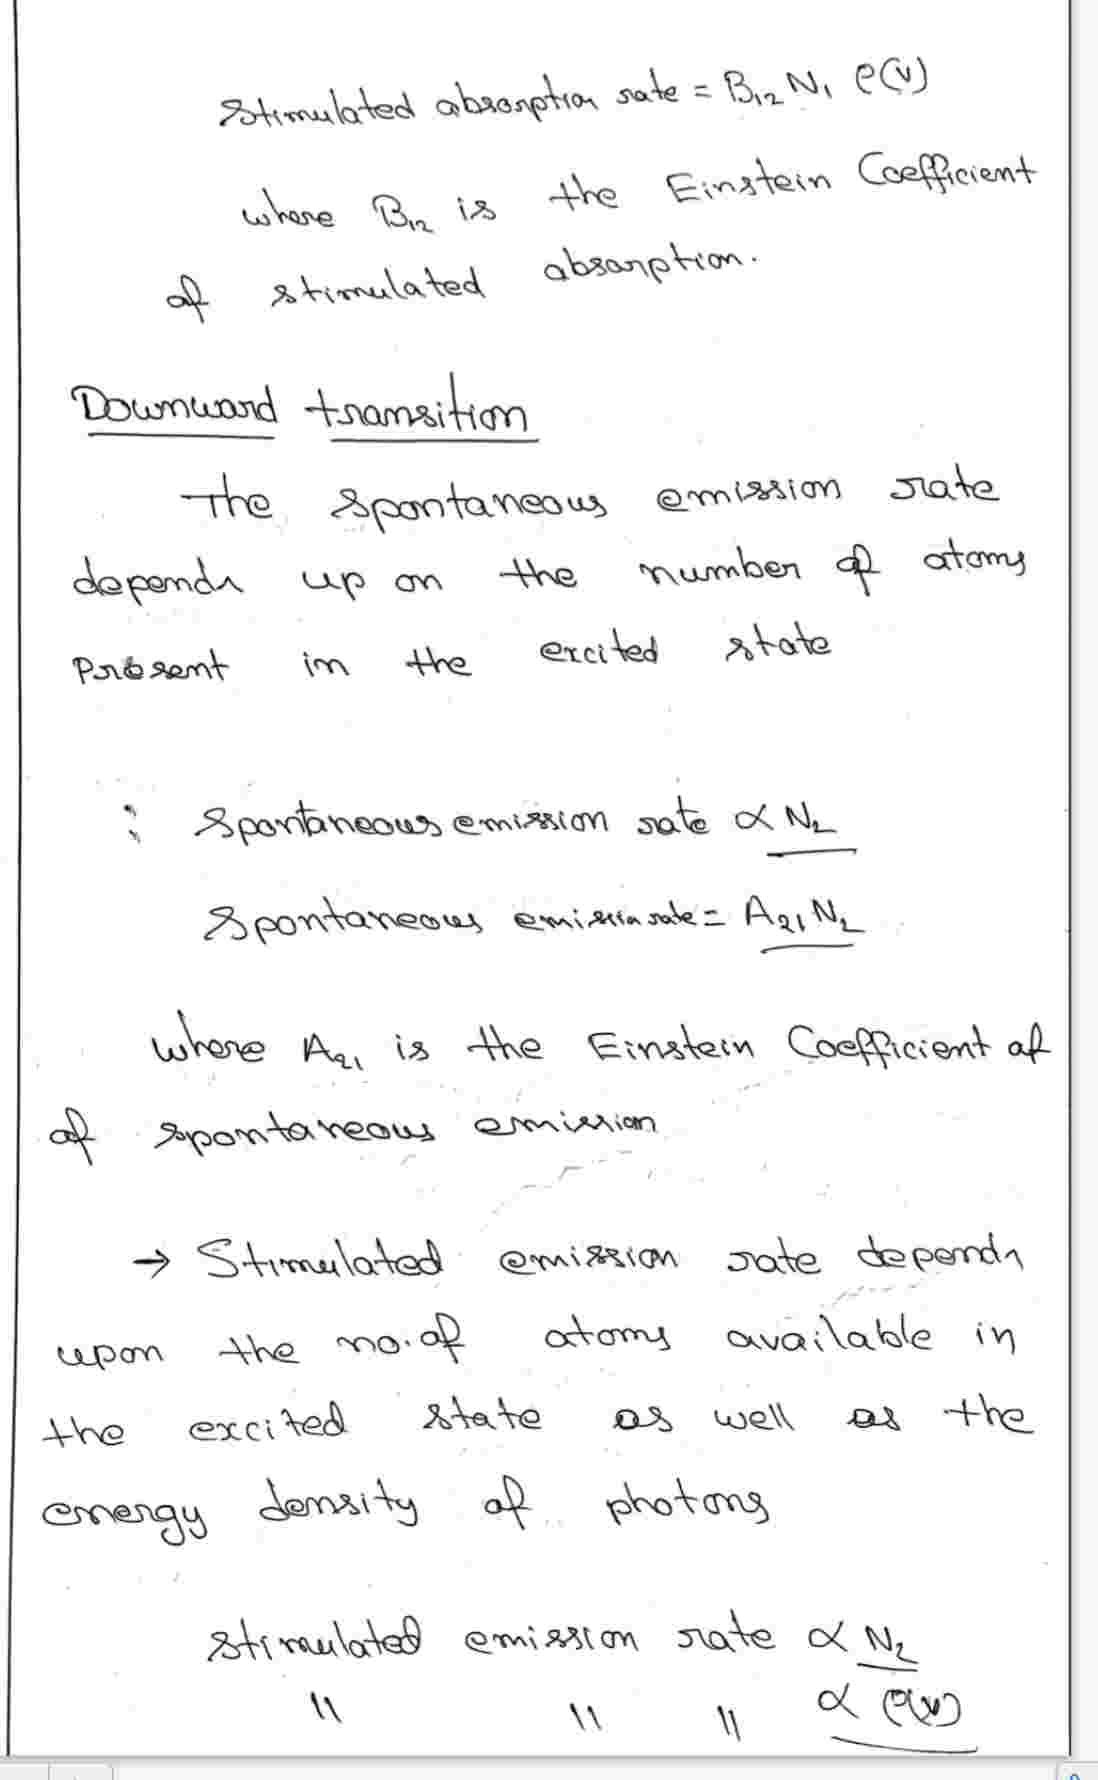 Stimulated absorption rate = B₁₂ N₁ ρ(ν)
where B₁₂ is the Einstein Coefficient
of stimulated absorption.
Downward transition
The spontaneous emission rate
depends up on the number of atoms
present in the excited state
: Spontaneous emission rate ∝ N₂
Spontaneous emission rate = A₂₁ N₂
where A₂₁ is the Einstein Coefficient of
of spontaneous emission
→ Stimulated emission rate depends
upon the no. of atoms available in
the excited state as well as the
energy density of photons
stimulated emission rate ∝ N₂
" " " ∝ ρ(ν)